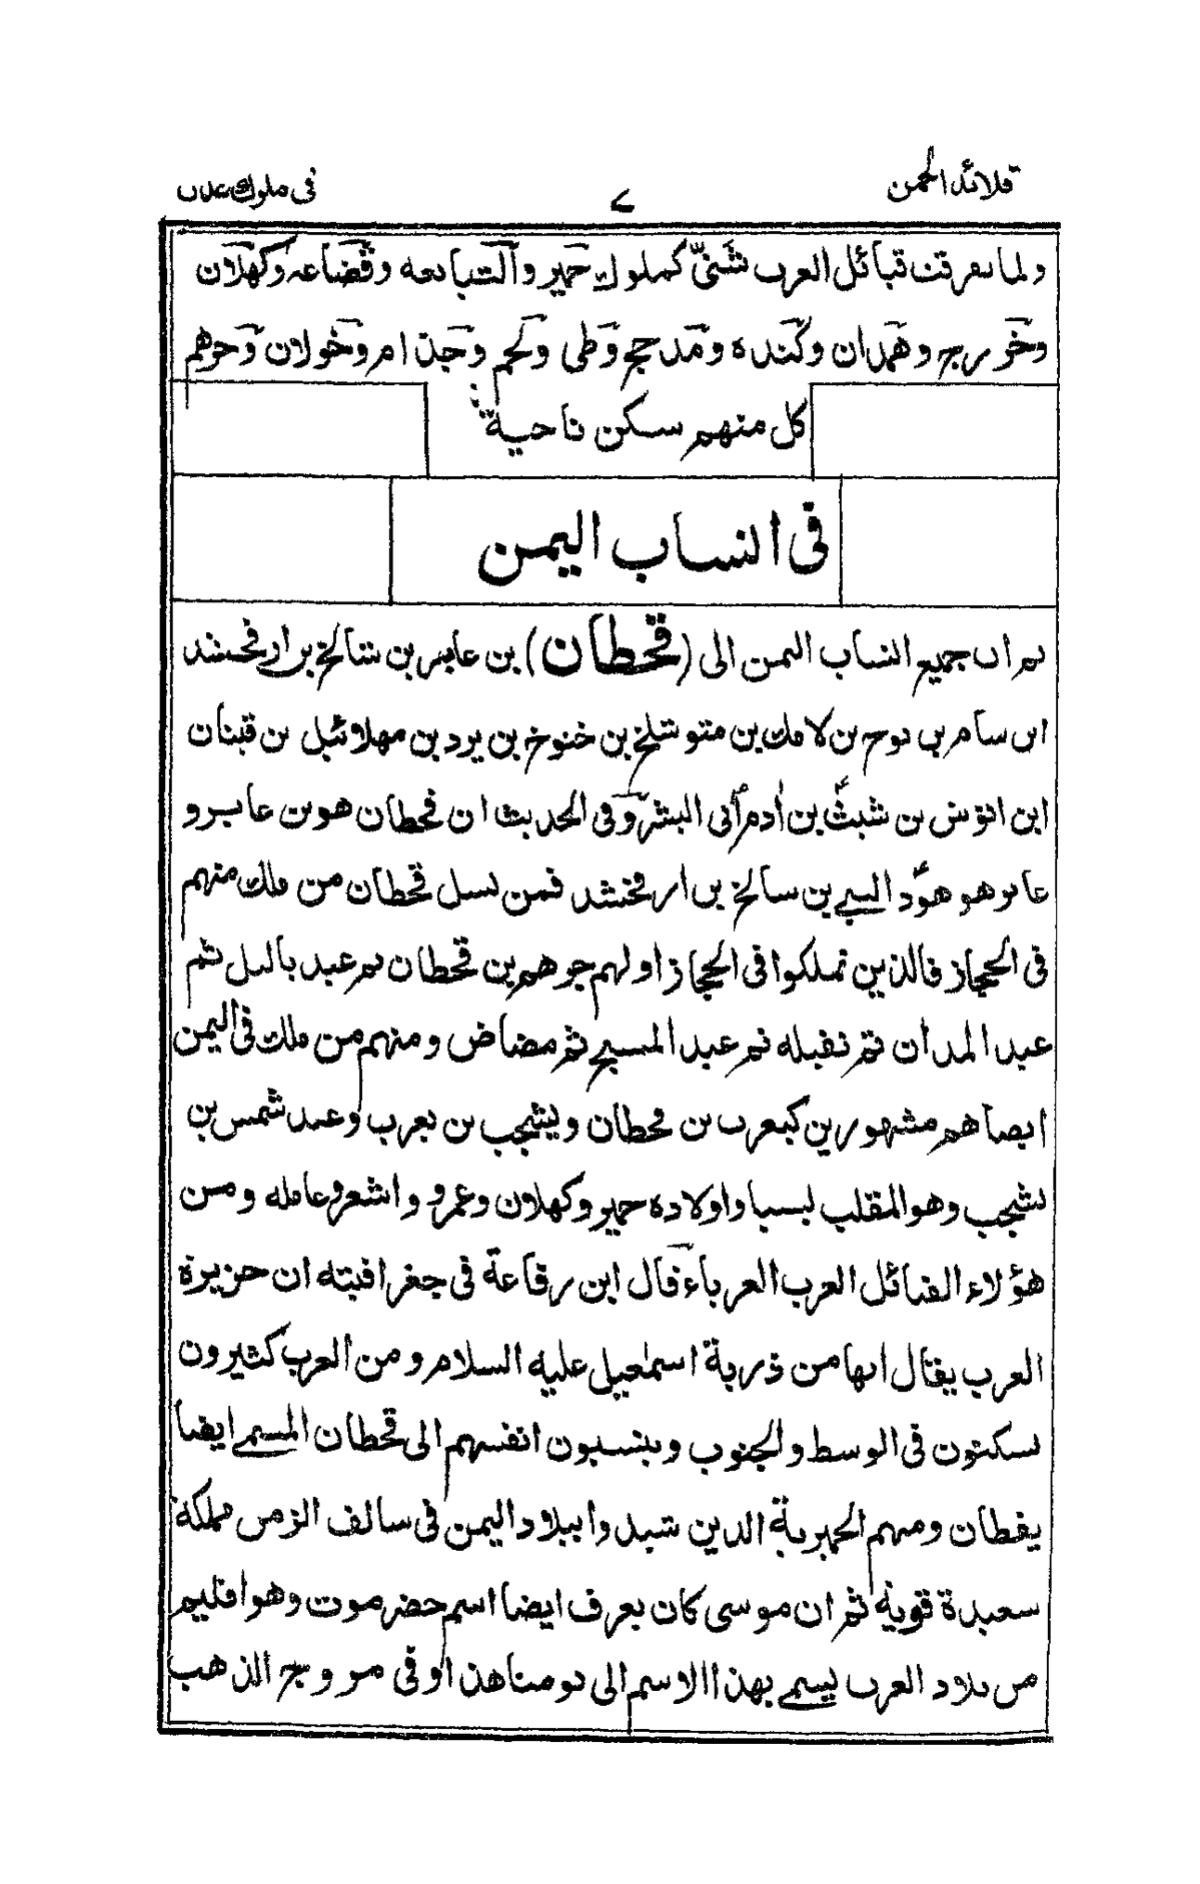 قلائد الجمن
٧
فى ملوك عدن
ولما تفرقت قبائل العرب شتىّ كملوك حمير والتبابعه وقضاعه وكهلان
وخزرج وهمدان وكنده ومدحج وطى ولخم وجذام وخولان وجرهم
كل منهم سكن ناحية
فى انساب اليمن
ثم ان جميع انساب اليمن الى (قحطان) بن عابر بن شالخ بن ارفخشد
ابن سام بن نوح بن لامك بن متوشلخ بن خنوخ بن يرد بن مهلائيل بن قينان
ابن انوش بن شيث بن أدم أبى البشر وفى الحديث ان قحطان هو بن عابر و
عابر هو هود النبى بن سالخ بن ارفخشد فمن نسل قحطان من ملك منهم
فى الحجاز فالذين تملكوا فى الحجاز اولهم جرهم بن قحطان ثم عبد باليل ثم
عبد المدان ثم نفيله ثم عبد المسيح ثم مضاض ومنهم من ملك فى اليمن
ايضا هم مشهورين كيعرب بن قحطان ويشجب بن يعرب وعبد شمس بن
يشجب وهو المقلب لسبا واولاده حمير وكهلان وعمرو واشعر وعامله ومن
هؤلاء القبائل العرب العرباء قال ابن رقاعة فى جغرافيته ان جزيرة
العرب يقال انها من ذرية اسمٰعيل عليه السلام ومن العرب كثيرون
يسكنون فى الوسط والجنوب وينسبون انفسهم الى قحطان المسمى ايضا
يقطان ومنهم الحميرية الذين شيدوا ببلاد اليمن فى سالف الزمن مملكة
سعيدة قوية ثم ان موسى كان يعرف ايضا اسم حضرموت وهو اقليم
من بلاد العرب يسمى بهذا الاسم الى يومنا هذا وفى مروج الذهب